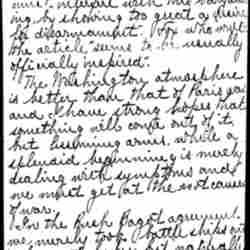 interfere with
ing, by showing too great a desire
for disarmament". Yrs who wrote
the article seems to be usually
officially inspired.
The Washington atmosphere
is better than that of Paris was
and I have strong hopes that
something will come out of it,
but lessening arms, while a
splendid beginning is merely
dealing with symptoms and
we must get at the root cause
of war.
In the Rush Bagot agreement
we merely took battle ships off